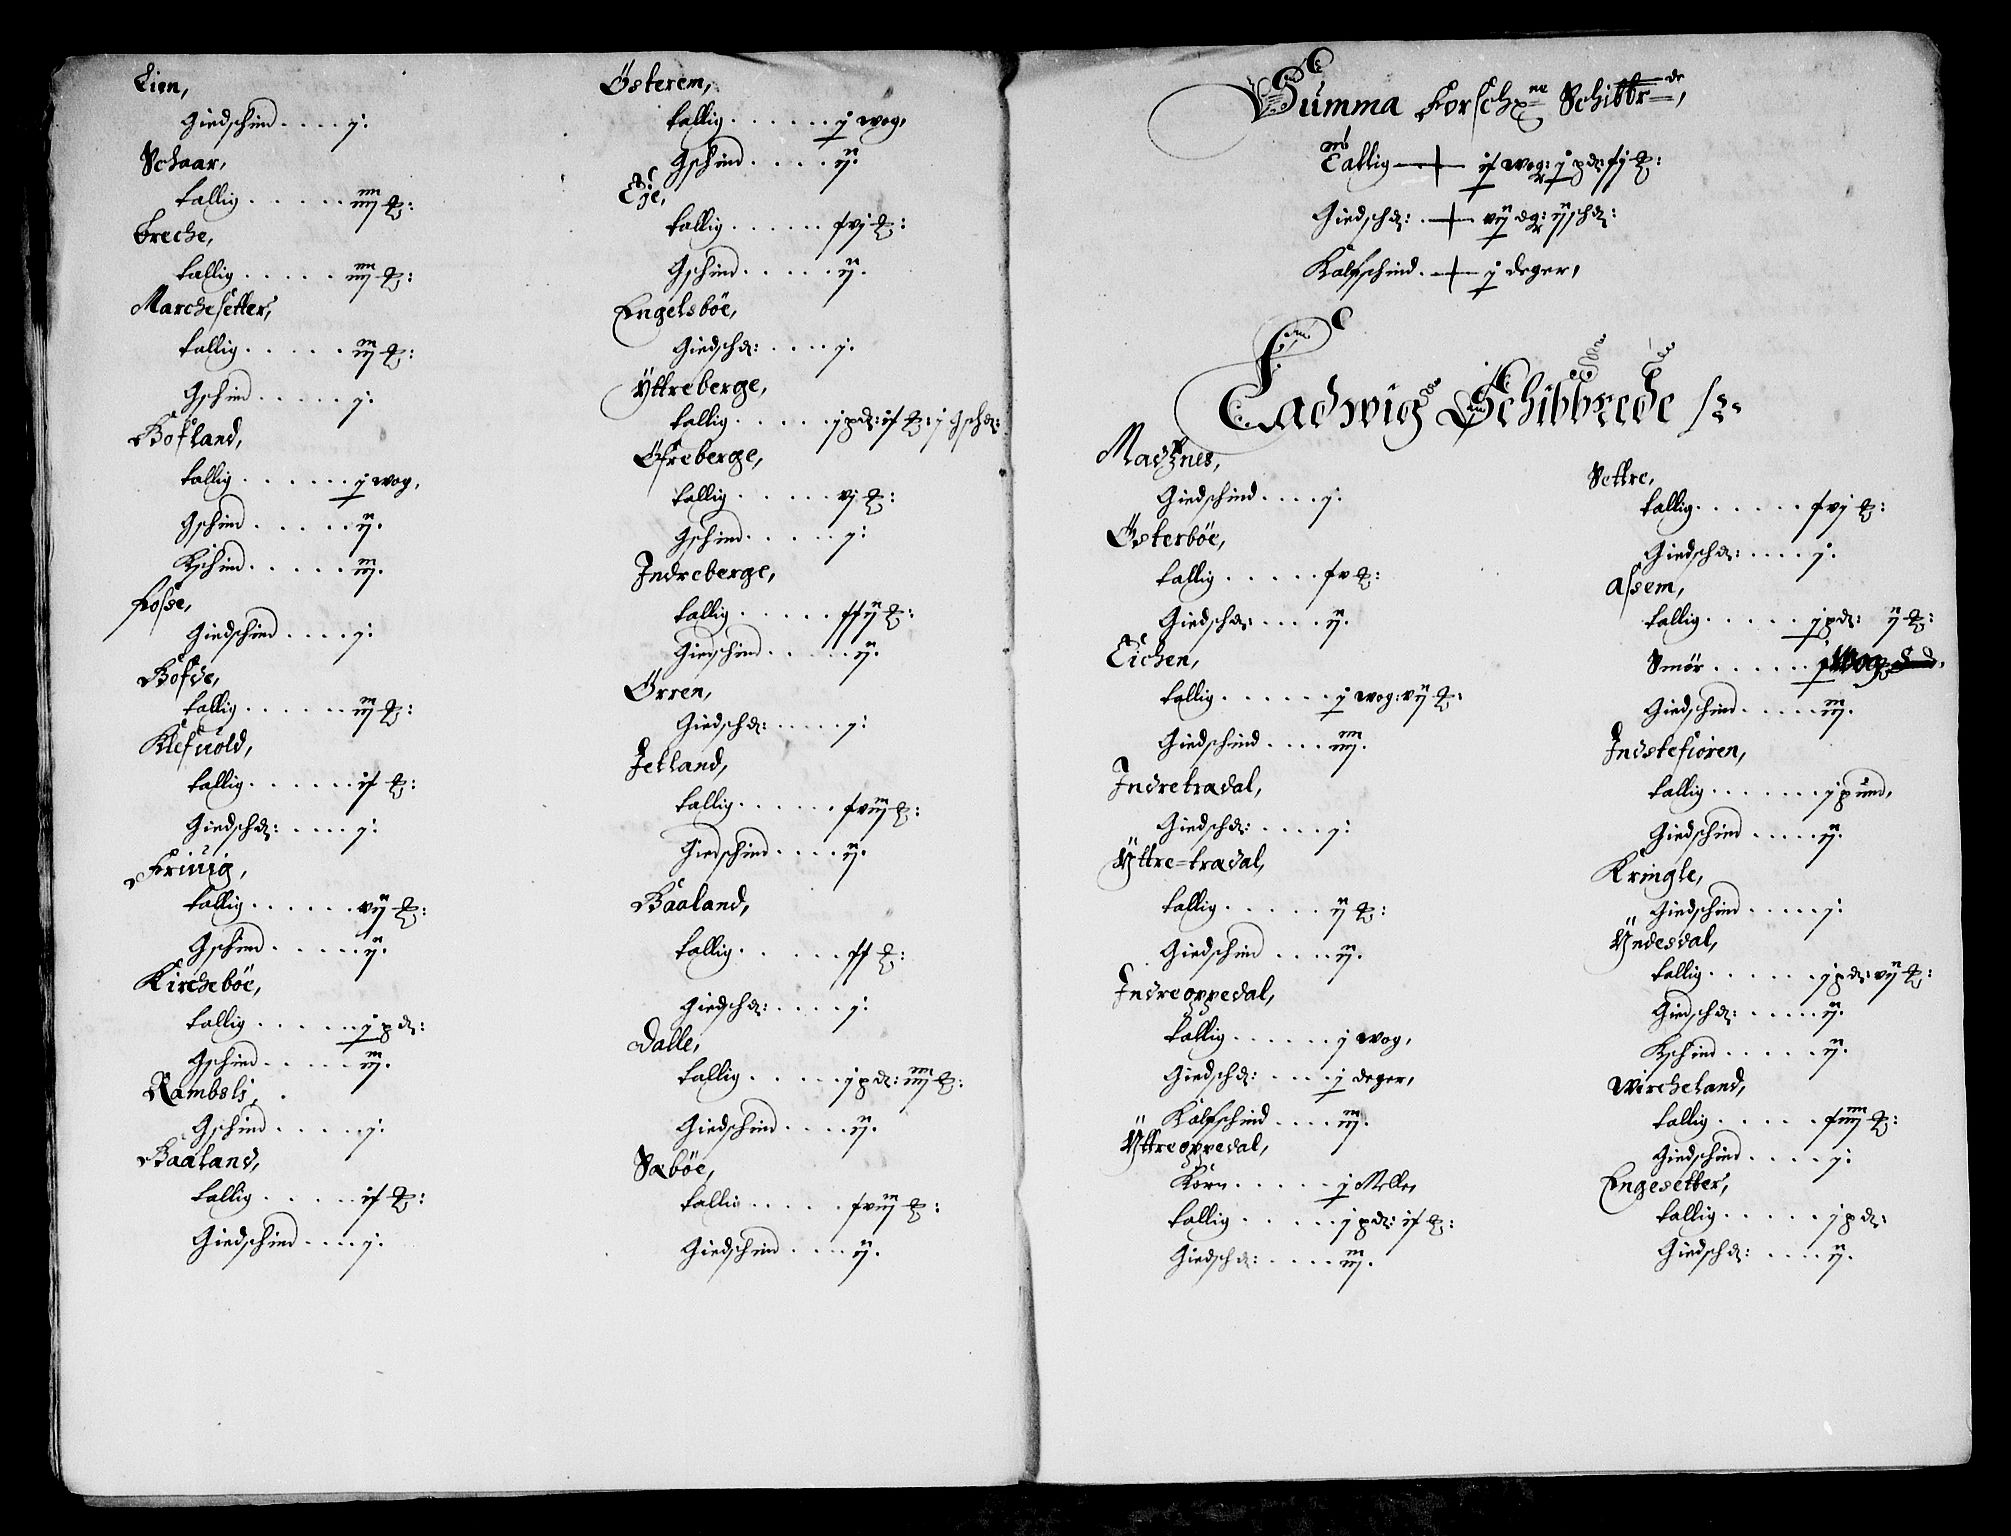 Eien,
Giedschind . . . . j:
Schaar,
tallig . . . . . iiij ℔:
breche,
tallig . . . . . iiij ℔:
Marchesetter,
tallig . . . . . iij ℔:
Gschind . . . . . j:
Bofland,
tallig . . . . . . j wog,
Gschind . . . . . ij.
Kschind . . . . . iij.
fosse,
Giedschind . . . . j:
Bofde,
tallig . . . . . . iij ℔:
Klefuold,
tallig . . . . . . if ℔:
Giedschd: . . . . j:
Friuig,
tallig . . . . . . vij ℔:
Gschind . . . . . ij.
Kircheböe,
tallig . . . . . j pd:
Gschind . . . . . iij.
Rambsli,
Gschind . . . . . j:
Baaland,
tallig . . . . . if ℔:
Giedschind . . . . j:
Österem,
tallig . . . . . . j wog,
Gschind . . . . ij.
Eje,
tallig . . . . . . fvj ℔:
Gschind . . . . . ij.
Engelsböe,
Giedschd: . . . . j:
Yttreberge,
tallig . . . . . j pd: if ℔: j gschd:
Öfreberge,
tallig . . . . . vj ℔:
Gschind . . . . . j:
Indreberge,
tallig . . . . . ffij ℔:
Giedschind . . . . . ij.
Örren,
Giedschd: . . . . . j:
Jetland,
tallig . . . . . . fviij ℔:
Giedschind . . . . ij.
Baaland,
tallig . . . . . ff ℔:
Giedschd: . . . . j:
Dalle,
tallig . . . . . j pd: iiij ℔:
Giedschind . . . . ij.
Saböe,
tallig . . . . . fviij ℔:
Giedschind . . . . ij.
Summa Forschne Schibbrde,
Tallig — if wog: j pd fj ℔:
Giedschd: . — vij dg: ij schd:
Kalfschind . — j deger,
Ladwig Schibbrede
Madznes,
Giedschind . . . . j:
Österböe,
tallig . . . . . fv ℔:
Giedschd: . . . . ij.
Eichen,
tallig . . . . . . j wog: vij ℔:
Giedschind . . . . iiij.
Indretradal,
Giedschd: . . . . j:
Yttre=tradal,
tallig . . . . . ij ℔:
Giedschind . . . . ij.
Indreoppedal,
tallig . . . . . . j wog,
Giedschd: . . . . j deger,
Kalfschind . . . . iij.
Yttreoppedal,
Korn . . . . . j Melle,
tallig . . . . . j pd: if ℔:
Giedschd: . . . . iij.
Settre,
tallig . . . . . . fvj ℔:
Giedschd: . . . . j:
Assem,
tallig . . . . . j pd: ij ℔:
Smör . . . . . . j wog
Giedschind . . . . . iij.
Indstefioren,
tallig . . . . . . j pund,
Giedschind . . . . . ij.
Kringle,
Giedschind . . . . . j:
Yndesdal,
tallig . . . . . . j pd: vij ℔:
Giedschd: . . . . . ij.
Kschind . . . . . ij.
Wircheland,
tallig . . . . . . fiiij ℔:
Giedschind . . . . j:
Engesetter,
tallig . . . . . j pd:
Giedschd: . . . . ij.